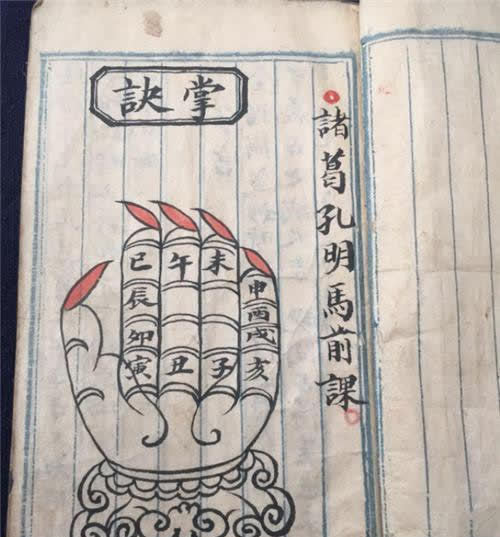 諸葛孔明馬前課
掌訣
巳 午 未 申
辰 酉
卯 戌
寅 丑 子 亥